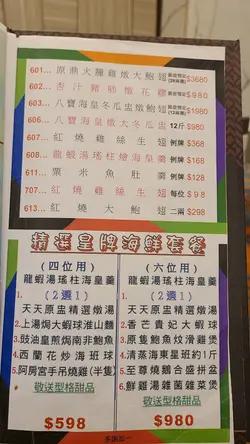 601... 原鼎火腫雞燉大鮑翅 $3680
602... 杏汁豬肺燉花膠 $980
603... 八寶海皇冬瓜盅燉鮑翅 $1980
606... 八寶海皇燉大冬瓜盅 12斤 $980
607... 紅燒雞絲生翅 例牌 $368
608... 龍蝦湯瑤柱燴海皇羹 例牌 $168
611... 粟米魚肚羹 例牌 $128
707... 紅燒雞絲生翅 每位 $98
613... 紅燒大鮑翅 二両 $298
精選皇牌海鮮套餐
(四位用)
龍蝦湯瑤柱海皇羹
(2選1)
1. 天天原盅精選燉湯
2. 上湯焗大蝦球淮山麵
3. 豉油皇煎焗南非鮑魚
4. 西蘭花炒海班球
5. 阿房宮手吊燒雞(半隻)
敬送型格甜品
$598
(六位用)
龍蝦湯瑤柱海皇羹
(2選1)
1. 天天原盅精選燉湯
2. 香芒貴妃大蝦球
3. 原隻鮑魚炆滑雞煲
4. 清蒸海東星班約1斤
5. 至尊燒鵝合盛拼盆
6. 鮮雞湯雜菌雜菜煲
敬送型格甜品
$980